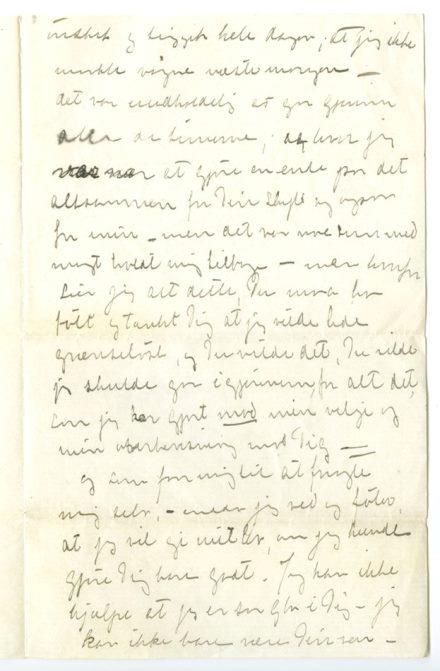 ønsket og tigget hele dagen, at jeg ikke
måtte vågne næste morgen —
det var umådelig at gå gjennem
alle de timerne, og hvor jeg
var nær at gjøre en ende på det
altsammen for Din skyld og også
for min – men det var noe som med
magt holdt mig tilbage – men hvorfor
sier jeg alt dette, Du må ha
følt og tænkt Dig at jeg vilde lide
grænseløst, og Du vilde det, Du vilde
jeg skulde gå igjennem for alt det,
som jeg har gjort mod min vilje og
min mod Dig —
og som får mig til at frygte
mig selv, – men jeg ved og føler,
at jeg vil gi mit liv, om jeg kunde
gjøre Dig bare godt. Jeg kan ikke
hjelpe at jeg er så gla i Dig – jeg
kan ikke bare være Din ven –